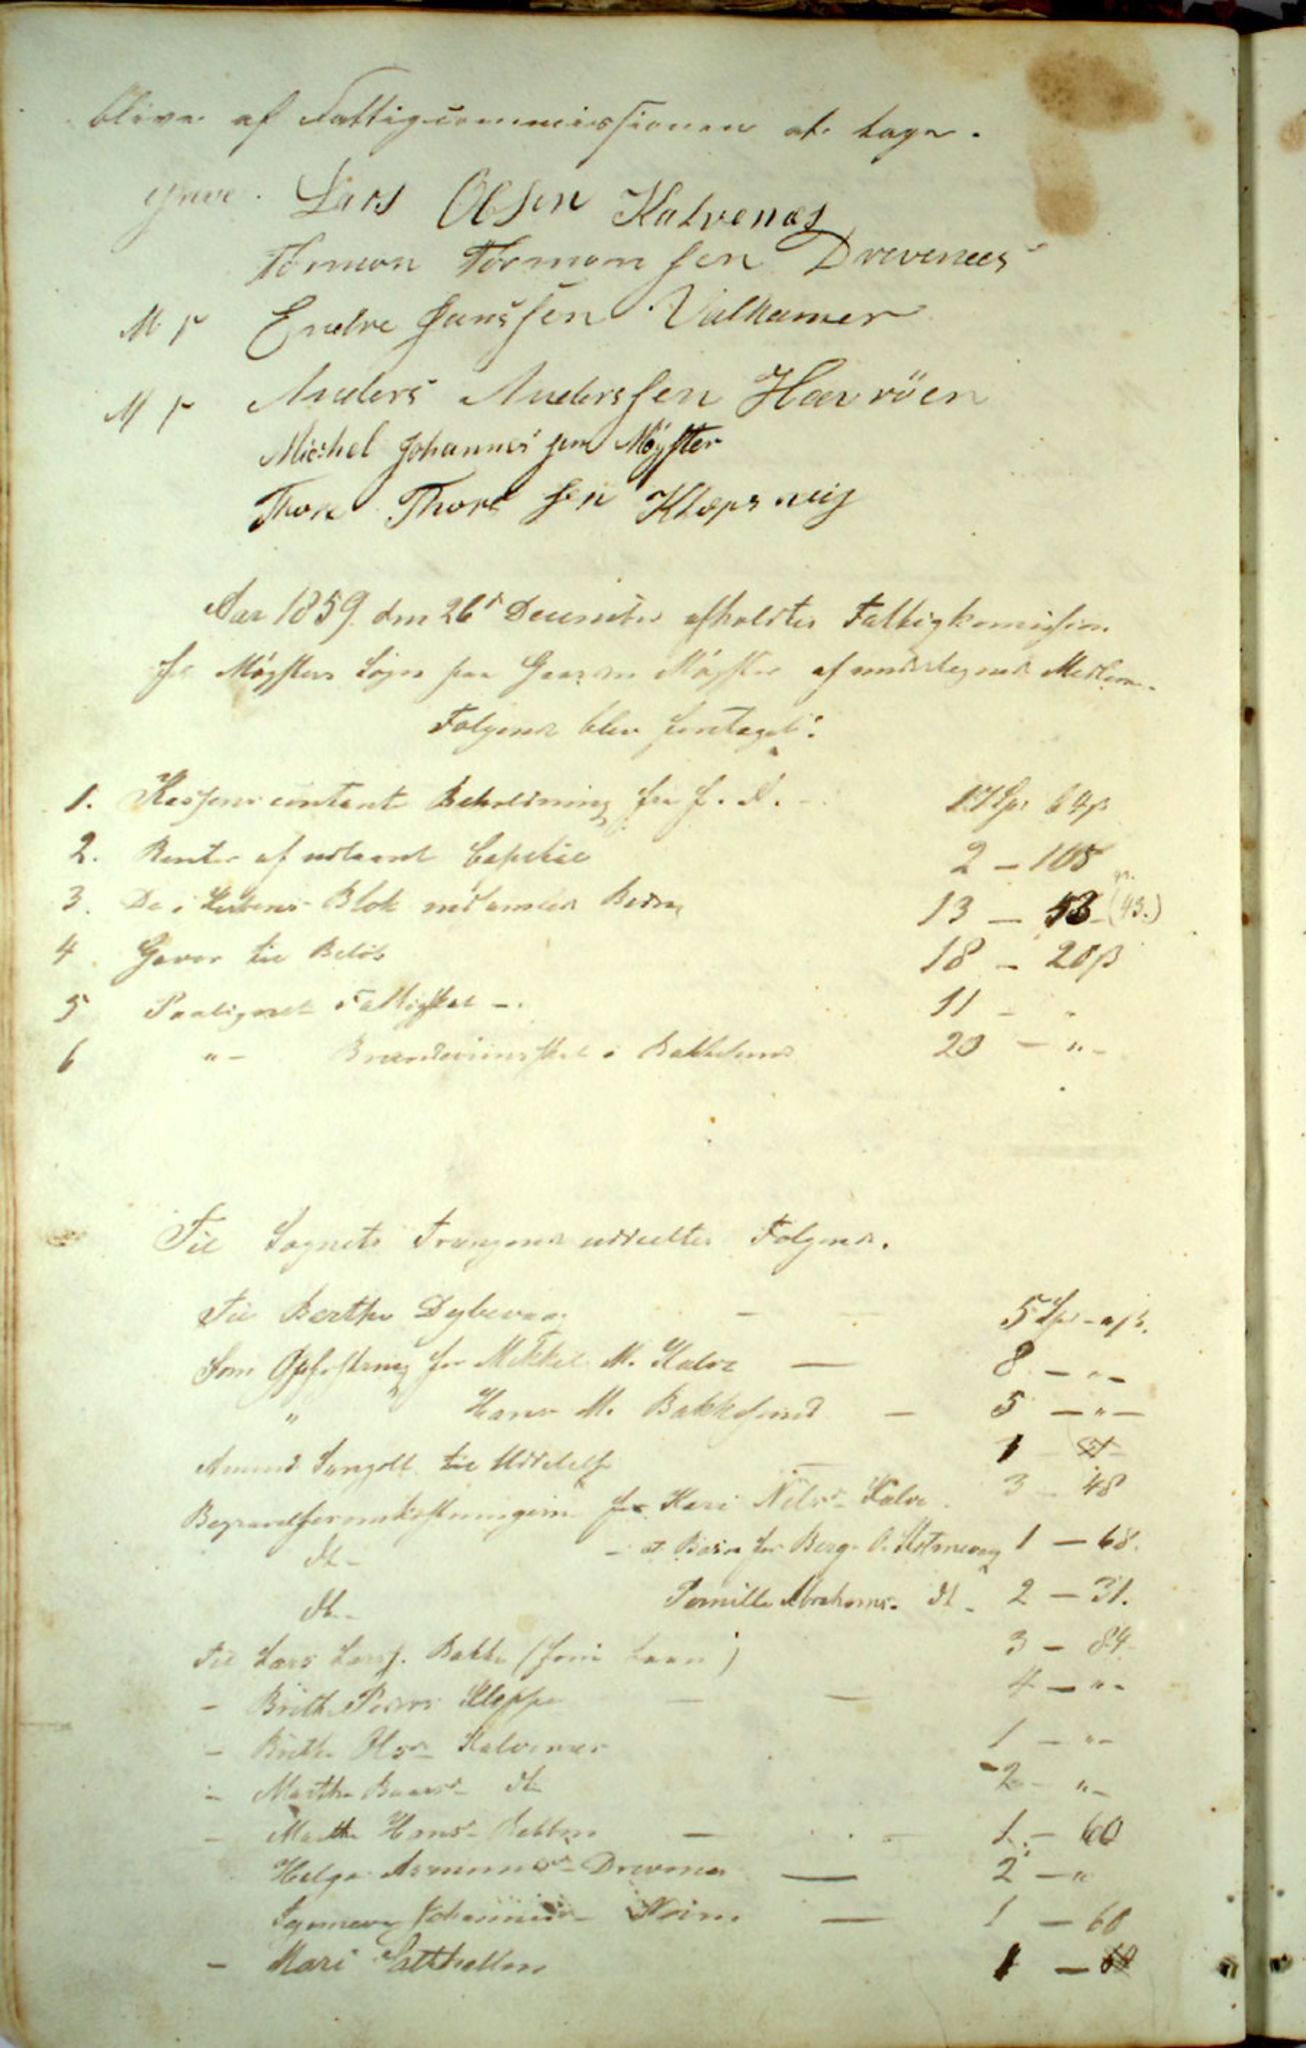 blive af Fattigcommissionen at tage.
Lars Olsen Kalvenæs
Tormon Tormonsen Drevenæs
M P Endre Hanssen Valhamer
M P Anders Anderssen Havröen
Michel Johannes sen Møgster
Thore Thore sen Klepsnæs
Aar 1859 den 26d December afholdtes Fattigkomission
for Møgsters Sogn paa Gaarden Møgster af undertegnede Medlem.
Følgende blev foretaget:
1. Kassens contante Beholdning fra f. A. - 17 Spd 64 ß
2. Renter af udlaant Capital 2 - 108
3. De i Kirkens Blok indkomne Bidrag 13 - 53 - (43.)
4 Gaver til Beløb 18 - 20 ß
5 Paalignet Fattigskat - 11 - "
6 "- Brændeviinsskat i Bakkesund 20 - "-
Til Sognets Trængende uddeltes Følgende.
Til Berthe Dybevaag - 5 Spd - " ß.
Som Opfostring for Mikkel M. Kalve - 8 - "-
" Hans M. Bakkesund - 5 - "-
Amund til 1
Begravelsesomkostningerne for Kari Nilsd. Kalve 3 - 48
dt - et Barn for Berg. O. 1 - 68.
dt - Pernille Abrahams. dt - 2 - 31.
Til Lars Larss. Bakke (som Laan) 3 - 84
- Brithe Peders Kleppe - - 4 - "-
- Brithe Olsd. Kalvenæs 1 - "-
- Marthe dt 2 - "-
- Marthe Hansd. - 1 - 60
Helge Drevenæs - 2 - "
Johannesd. - 1 - 60
- Mari 1 -